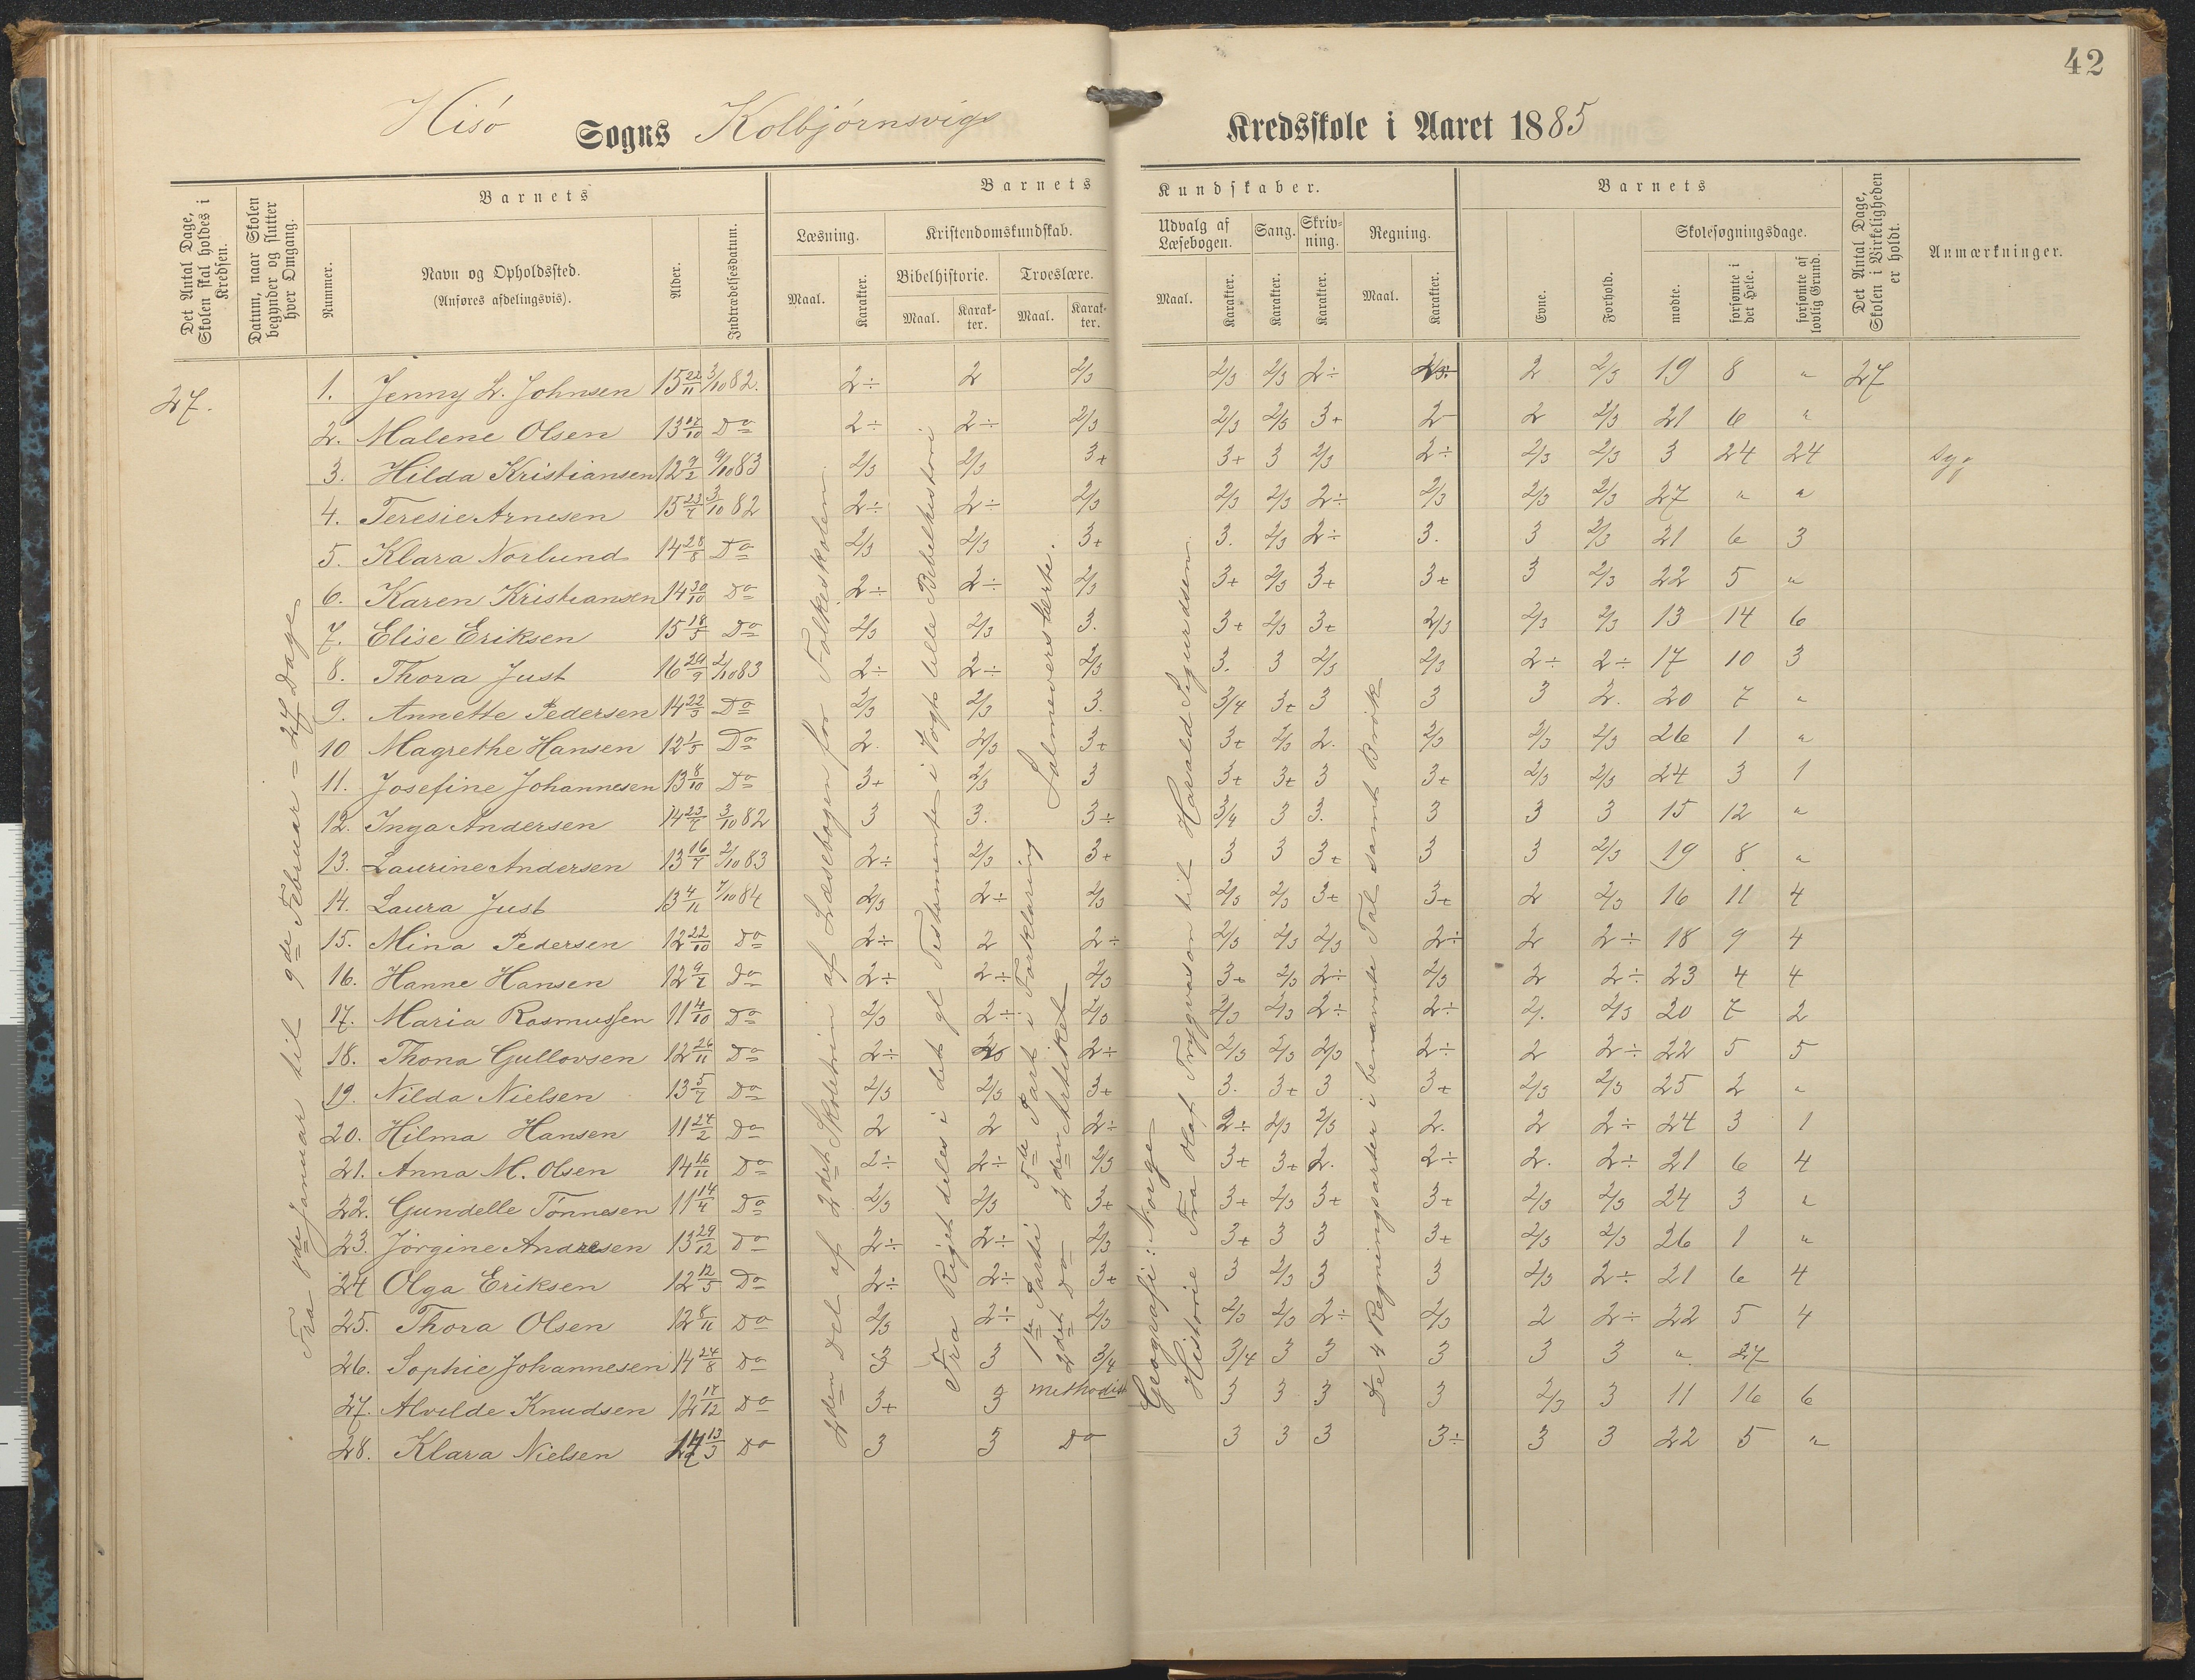 42
Hisö Sogns Kolbjörnsvigs Kredsskole i Aaret 1885
Det Antal Dage, Skolen skal holdes i Kredsen.
Datum, naar Skolen begynder og slutter hver Omgang.
Barnets
Nummer.
Navn og Opholdssted.
(Anføres afdelingsvis).
Alder.
Indtrædelsesdatum.
Barnets Kundskaber.
Læsning.
Maal.
Karakter.
Kristendomskundskab.
Bibelhistorie.
Maal.
Karakter.
Troeslære.
Maal.
Karakter.
Udvalg af Læsebogen.
Maal.
Karakter.
Sang.
Karakter.
Skrivning.
Karakter.
Regning.
Maal.
Karakter.
Barnets
Evne.
Forhold.
Skolesøgningsdage.
mødte.
forsømte i det Hele.
forsømte af lovlig Grund.
Det Antal Dage, Skolen i Virkeligheden er holdt.
Anmærkninger.
27.
Fra Januar til 9de Februar = 27 Dage
2den Del af 2det Skoletrin af Læsebogen for Folkeskolen
Fra Rigets deles i det gl Testamente i Vogts lille Bibelhistorie
1ste Parti 5te Part i Forklaring
2det Do 2den Artikel
Salmevers lærte.
Geografi: Norge
Historie Fra Olaf Trygvason til Harald Sigurdsen
De 4 Regningsarter i benævnte Tal samt Brök
1. Jenny L. Johnsen 15 22/11 3/10 82. 2÷ 2 2/3 2/3 2/3 2÷ 2 2/3 19 8 " 27
2. Malene Olsen 13 17/10 Do 2÷ 2÷ 2/3 2/3 2/3 3+ 2 2 2/3 21 6 "
3. Hilda Kristiansen 12 9/2 9/10 83 2/3 2/3 3+ 3+ 3 2/3 2÷ 2/3 2/3 3 24 24 Syg
4. Teresie Arnesen 15 23/7 3/10 82 2÷ 2÷ 2/3 2/3 2/3 2÷ 2/3 2/3 2/3 27 " "
5. Klara Norlund 14 28/8 Do 2/3 2/3 3+ 3. 2/3 2÷ 3. 3 2/3 21 6 3
6. Karen Kristiansen 14 30/10 Do 2÷ 2÷ 2/3 3+ 2/3 3+ 3+ 3 2/3 22 5 "
7. Elise Eriksen 15 18/5 Do 2/3 2/3 3. 3+ 2/3 3+ 2/3 2/3 2/3 13 14 6
8. Thora Just 16 29/9 2/10 83 2÷ 2÷ 2/3 3. 3 2/3 2/3 2÷ 2÷ 17 10 3
9. Annette Pedersen 14 22/3 Do 2/3 2/3 3. 3/4 3+ 3 3 3 2. 20 7 "
10 Magrethe Hansen 12 1/5 Do 2. 2/3 3+ 3+ 2/3 2. 2/3 2/3 2/3 26 1 "
11. Josefine Johannesen 13 8/10 Do 3+ 2/3 3 3+ 3+ 3 3+ 2/3 2/3 24 3 1
12. Inga Andersen 14 23/7 3/10 82 3 3. 3÷ 3/4 3 3. 3 3 3 15 12 "
13. Laurine Andersen 13 16/7 2/10 83 2÷ 2/3 3+ 3 3 3+ 3 3 2/3 19 8 "
14. Laura Just 13 4/11 7/10 84 2/3 2÷ 2/3 2/3 2/3 3+ 3+ 2 2/3 16 11 4
15. Mina Pedersen 12 22/10 Do 2÷ 2 2÷ 2/3 2/3 2/3 2÷ 2 2÷ 18 9 4
16. Hanne Hansen 12 9/7 Do 2÷ 2÷ 2/3 3+ 2/3 2÷ 2/3 2 2÷ 23 4 4
17. Maria Rasmussen 11 4/10 Do 2/3 2÷ 2/3 2/3 2/3 2÷ 2÷ 2. 2/3 20 7 2
18. Thona Gullovsen 12 26/11 Do 2÷ 2÷ 2/3 2/3 2/3 2÷ 2 2÷ 22 5 5
19. Nilda Nielsen 13 5/7 Do 2/3 2/3 3+ 3. 3+ 3 3+ 2/3 2/3 25 2 "
20. Hilma Hansen 11 24/2 Do 2 2 2÷ 2÷ 2/3 2/3 2. 2 2÷ 24 3 1
21. Anna M. Olsen 14 16/11 Do 2÷ 2÷ 2/3 3+ 3+ 2. 2÷ 2. 2÷ 21 6 4
22. Gundelle Tönnesen 11 14/4 Do 2/3 2/3 3+ 3+ 2/3 3+ 3+ 2/3 2/3 24 3 "
23. Jörgine Andresen 13 29/12 Do 2÷ 2÷ 2/3 3+ 3 3 3+ 2/3 2/3 26 1 "
24 Olga Eriksen 12 12/5 Do 2÷ 2÷ 3+ 3 2/3 3 3 2/3 2÷ 21 6 4
25. Thora Olsen 12 8/11 Do 2/3 2÷ 2/3 2/3 2/3 2÷ 2/3 2 2÷ 22 5 4
26. Sophie Johannesen 14 24/8 Do 3 3 3/4 3/4 3 3 3 3 3 " 27
27. Alvilde Knudsen 12 17/12 Do 3+ 3 Methodist 3 3 3 3 2/3 3 11 16 6
28. Klara Nielsen 13/3 Do 3 3 Do 3 3 3 3÷ 3 3 22 5 "